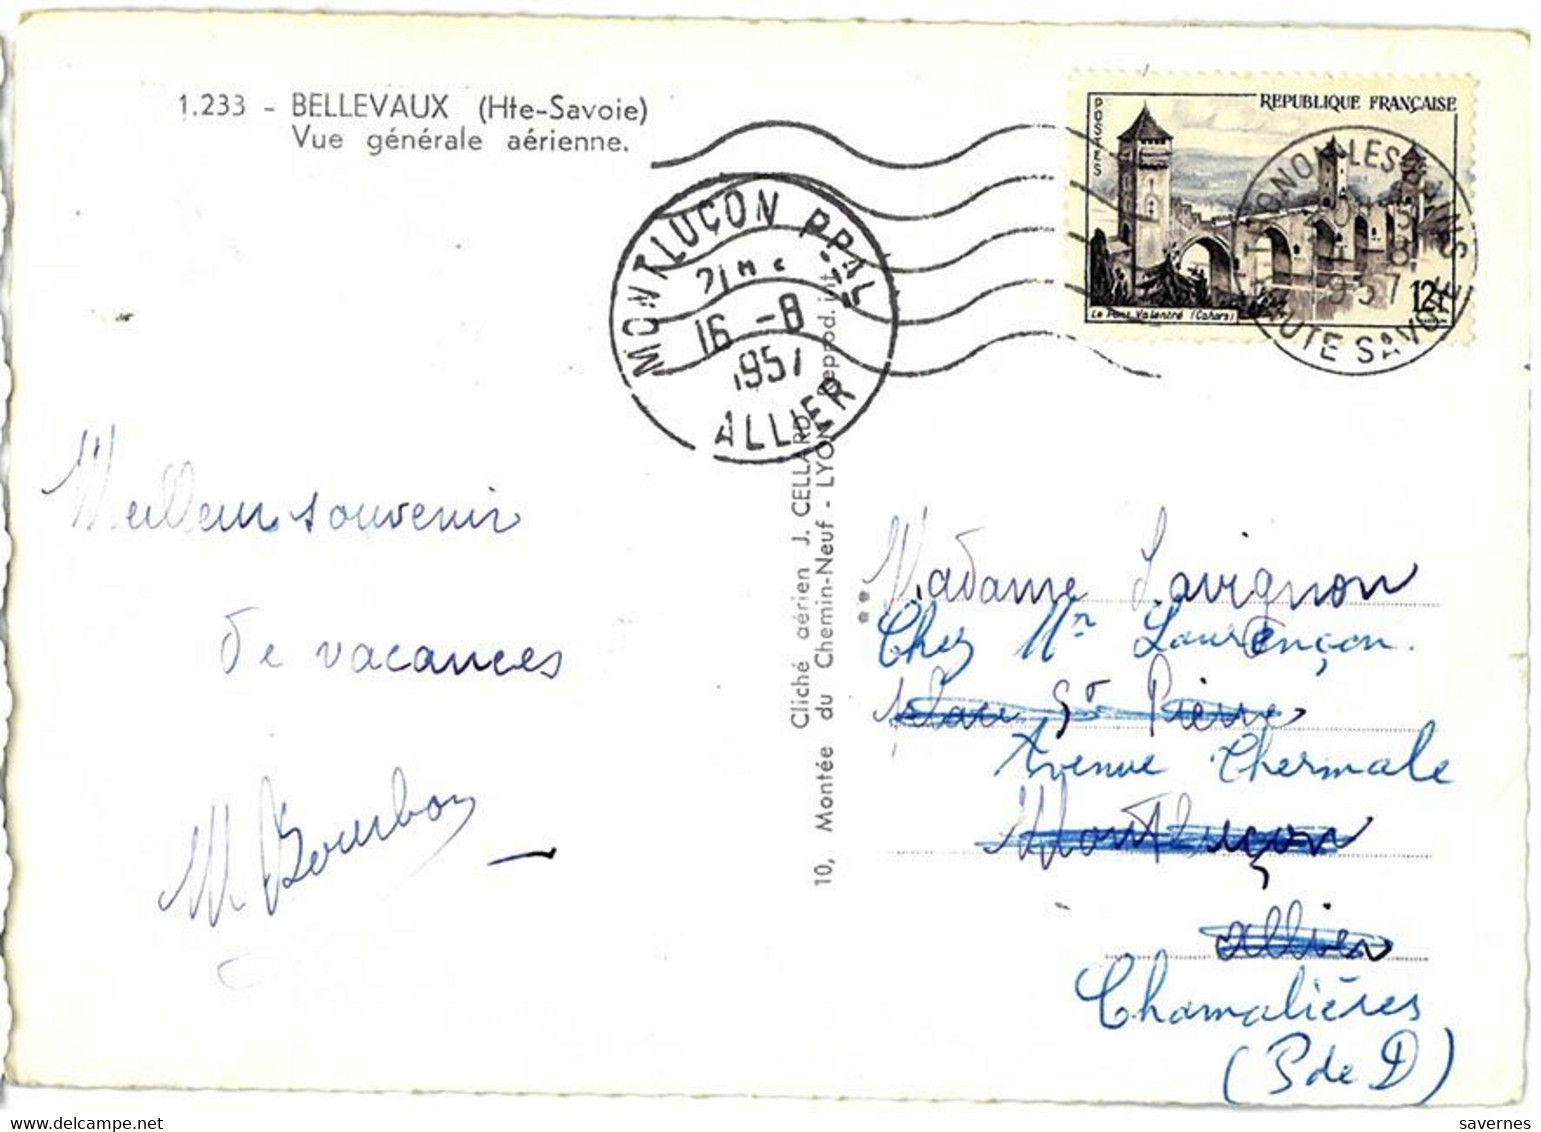 1.233 - BELLEVAUX (Hte-Savoie)
Vue générale aérienne.
POSTES
REPUBLIQUE FRANÇAISE
Le Pont Valentré (Cahors)
12f
THONON LES BAINS
1957
HAUTE SAVOIE
MONTLUÇON PPAL
21H
16 -8
1957
ALLIER
Meilleurs souvenir
de vacances
M Bourbon
Cliché aérien J. CELLARD
10, Montée du Chemin-Neuf - LYON
Reprod. int.
**
Madame Lavignon
Chez Mr Laurençon.
Place St Pierre
Avenue Thermale
Montluçon
Allier
Chamalières
(P de D)
savernes
www.delcampe.net